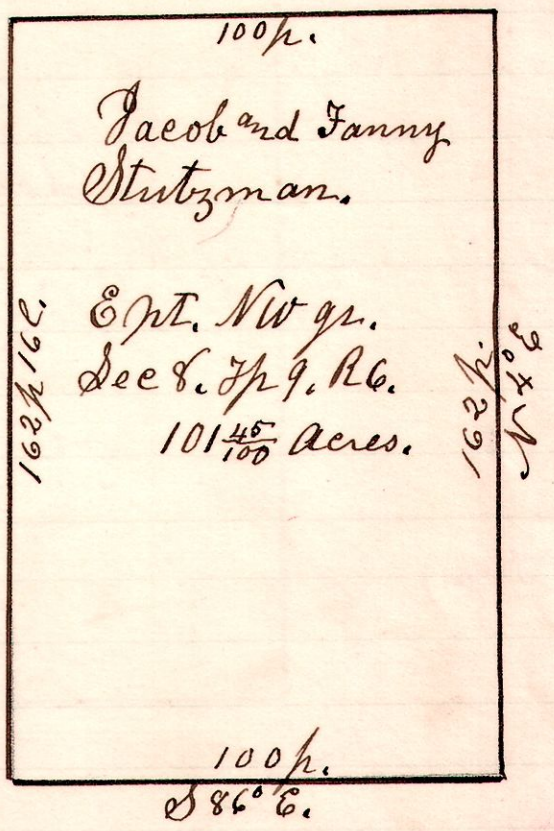 100p.
Jacob and Fanny
Stutzman.
E pt. NW qr.
Sec 8. Tp 9. R6.
101 45/100 Acres.
162p 16l.
162p.
N 4° E
100p.
S 86° E.